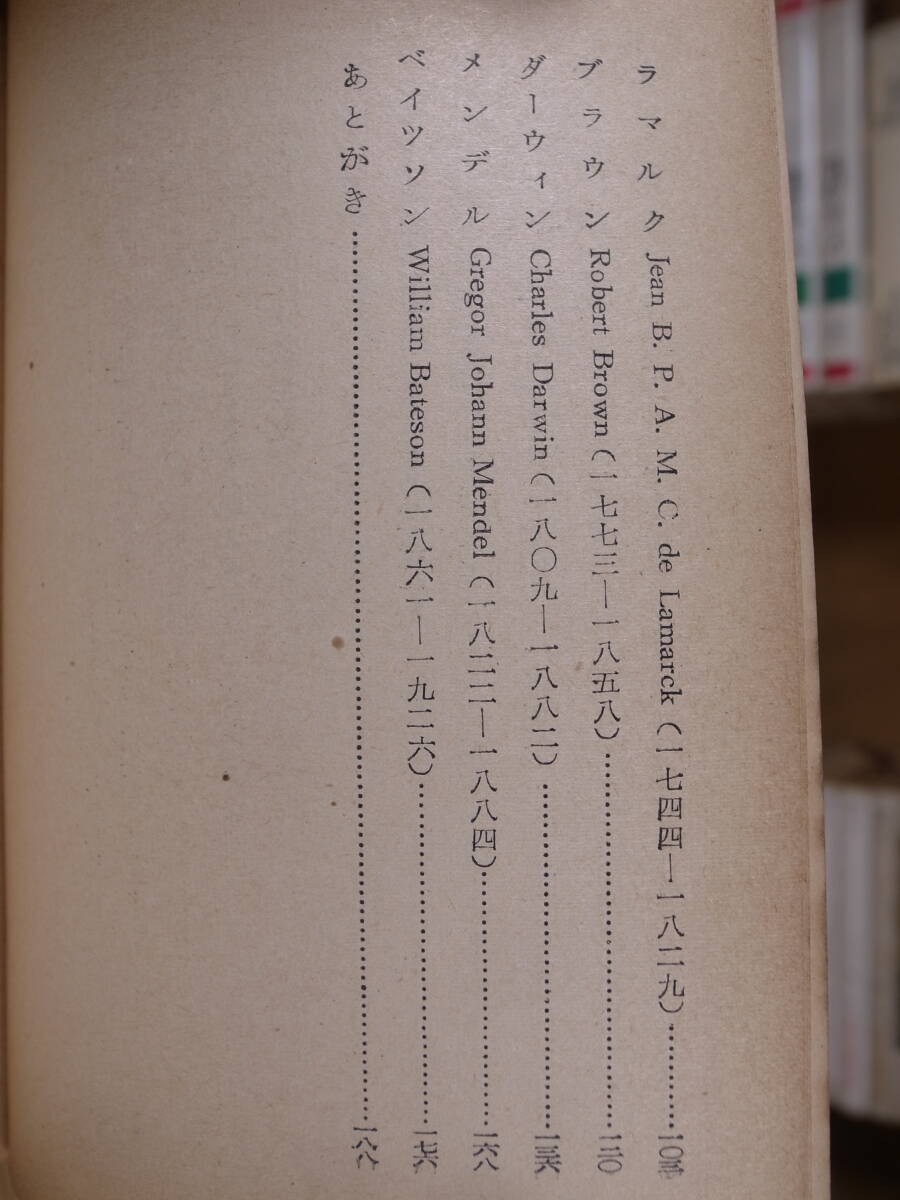 ラマルク Jean B. P. A. M. C. de Lamarck (一七四四—一八二九)…………
ブラウン Robert Brown (一七七三—一八五八)…………
ダーウィン Charles Darwin (一八〇九—一八八二)…………
メンデル Gregor Johann Mendel (一八二二—一八八四)…………
ベイツソン William Bateson (一八六一—一九二六)…………
あとがき…………